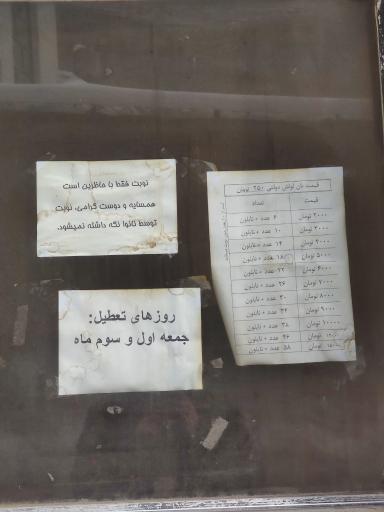 نوبت فقط با حاظرین است
همسایه و دوست گرامی، نوبت
توسط نانوا نگه داشته نمیشود.
روزهای تعطیل:
جمعه اول و سوم ماه
قیمت نان لواش دولتی ۲۵۰ تومان
قیمت تعداد
۲۰۰۰ تومان ۶ عدد + نایلون
۳۰۰۰ تومان ۱۰ عدد + نایلون
۴۰۰۰ تومان ۱۴ عدد + نایلون
۵۰۰۰ تومان ۱۸ عدد + نایلون
۶۰۰۰ تومان ۲۲ عدد + نایلون
۷۰۰۰ تومان ۲۶ عدد + نایلون
۸۰۰۰ تومان ۳۰ عدد + نایلون
۹۰۰۰ تومان ۳۴ عدد + نایلون
۱۰۰۰۰ تومان ۳۸ عدد + نایلون
تومان ۴۶ عدد + نایلون
تومان ۵۸ عدد + نایلون